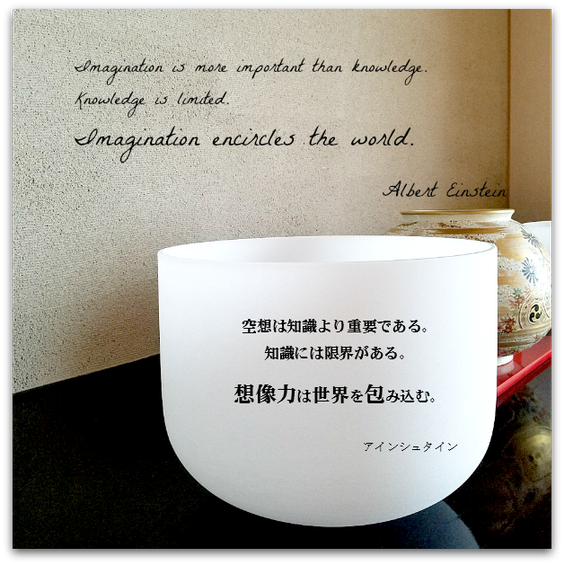 Imagination is more important than knowledge.
Knowledge is limited.
Imagination encircles the world.
Albert Einstein
空想は知識より重要である。
知識には限界がある。
想像力は世界を包み込む。
アインシュタイン